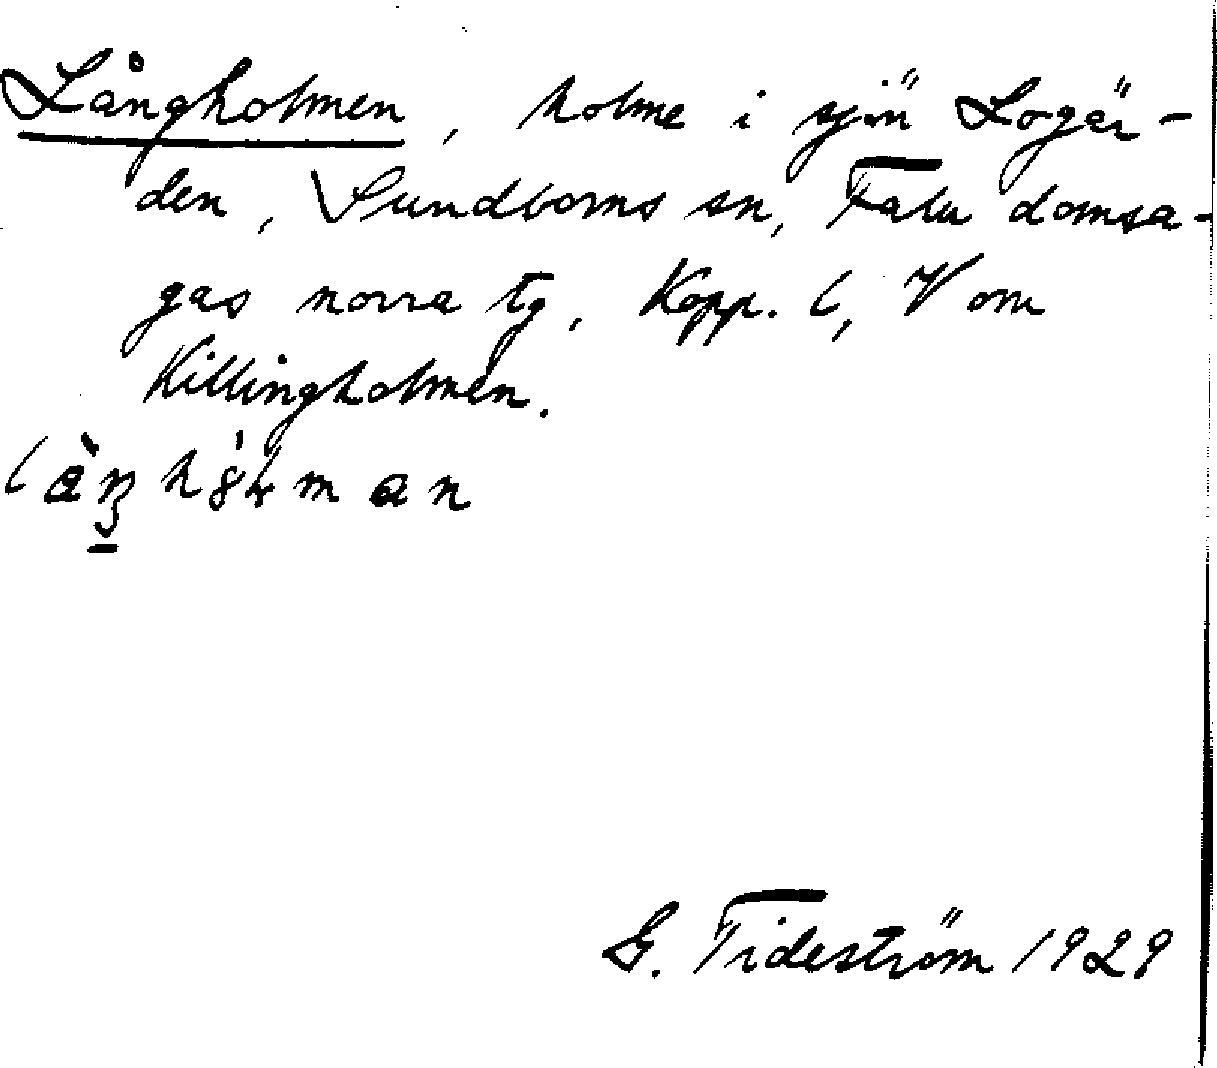 Långholmen, holme i sjön Logär-
den, Sundborns sn, Falu domsa-
gas norra tg, Kopp. l, V om
Killingholmen.
G. Tideström 1929